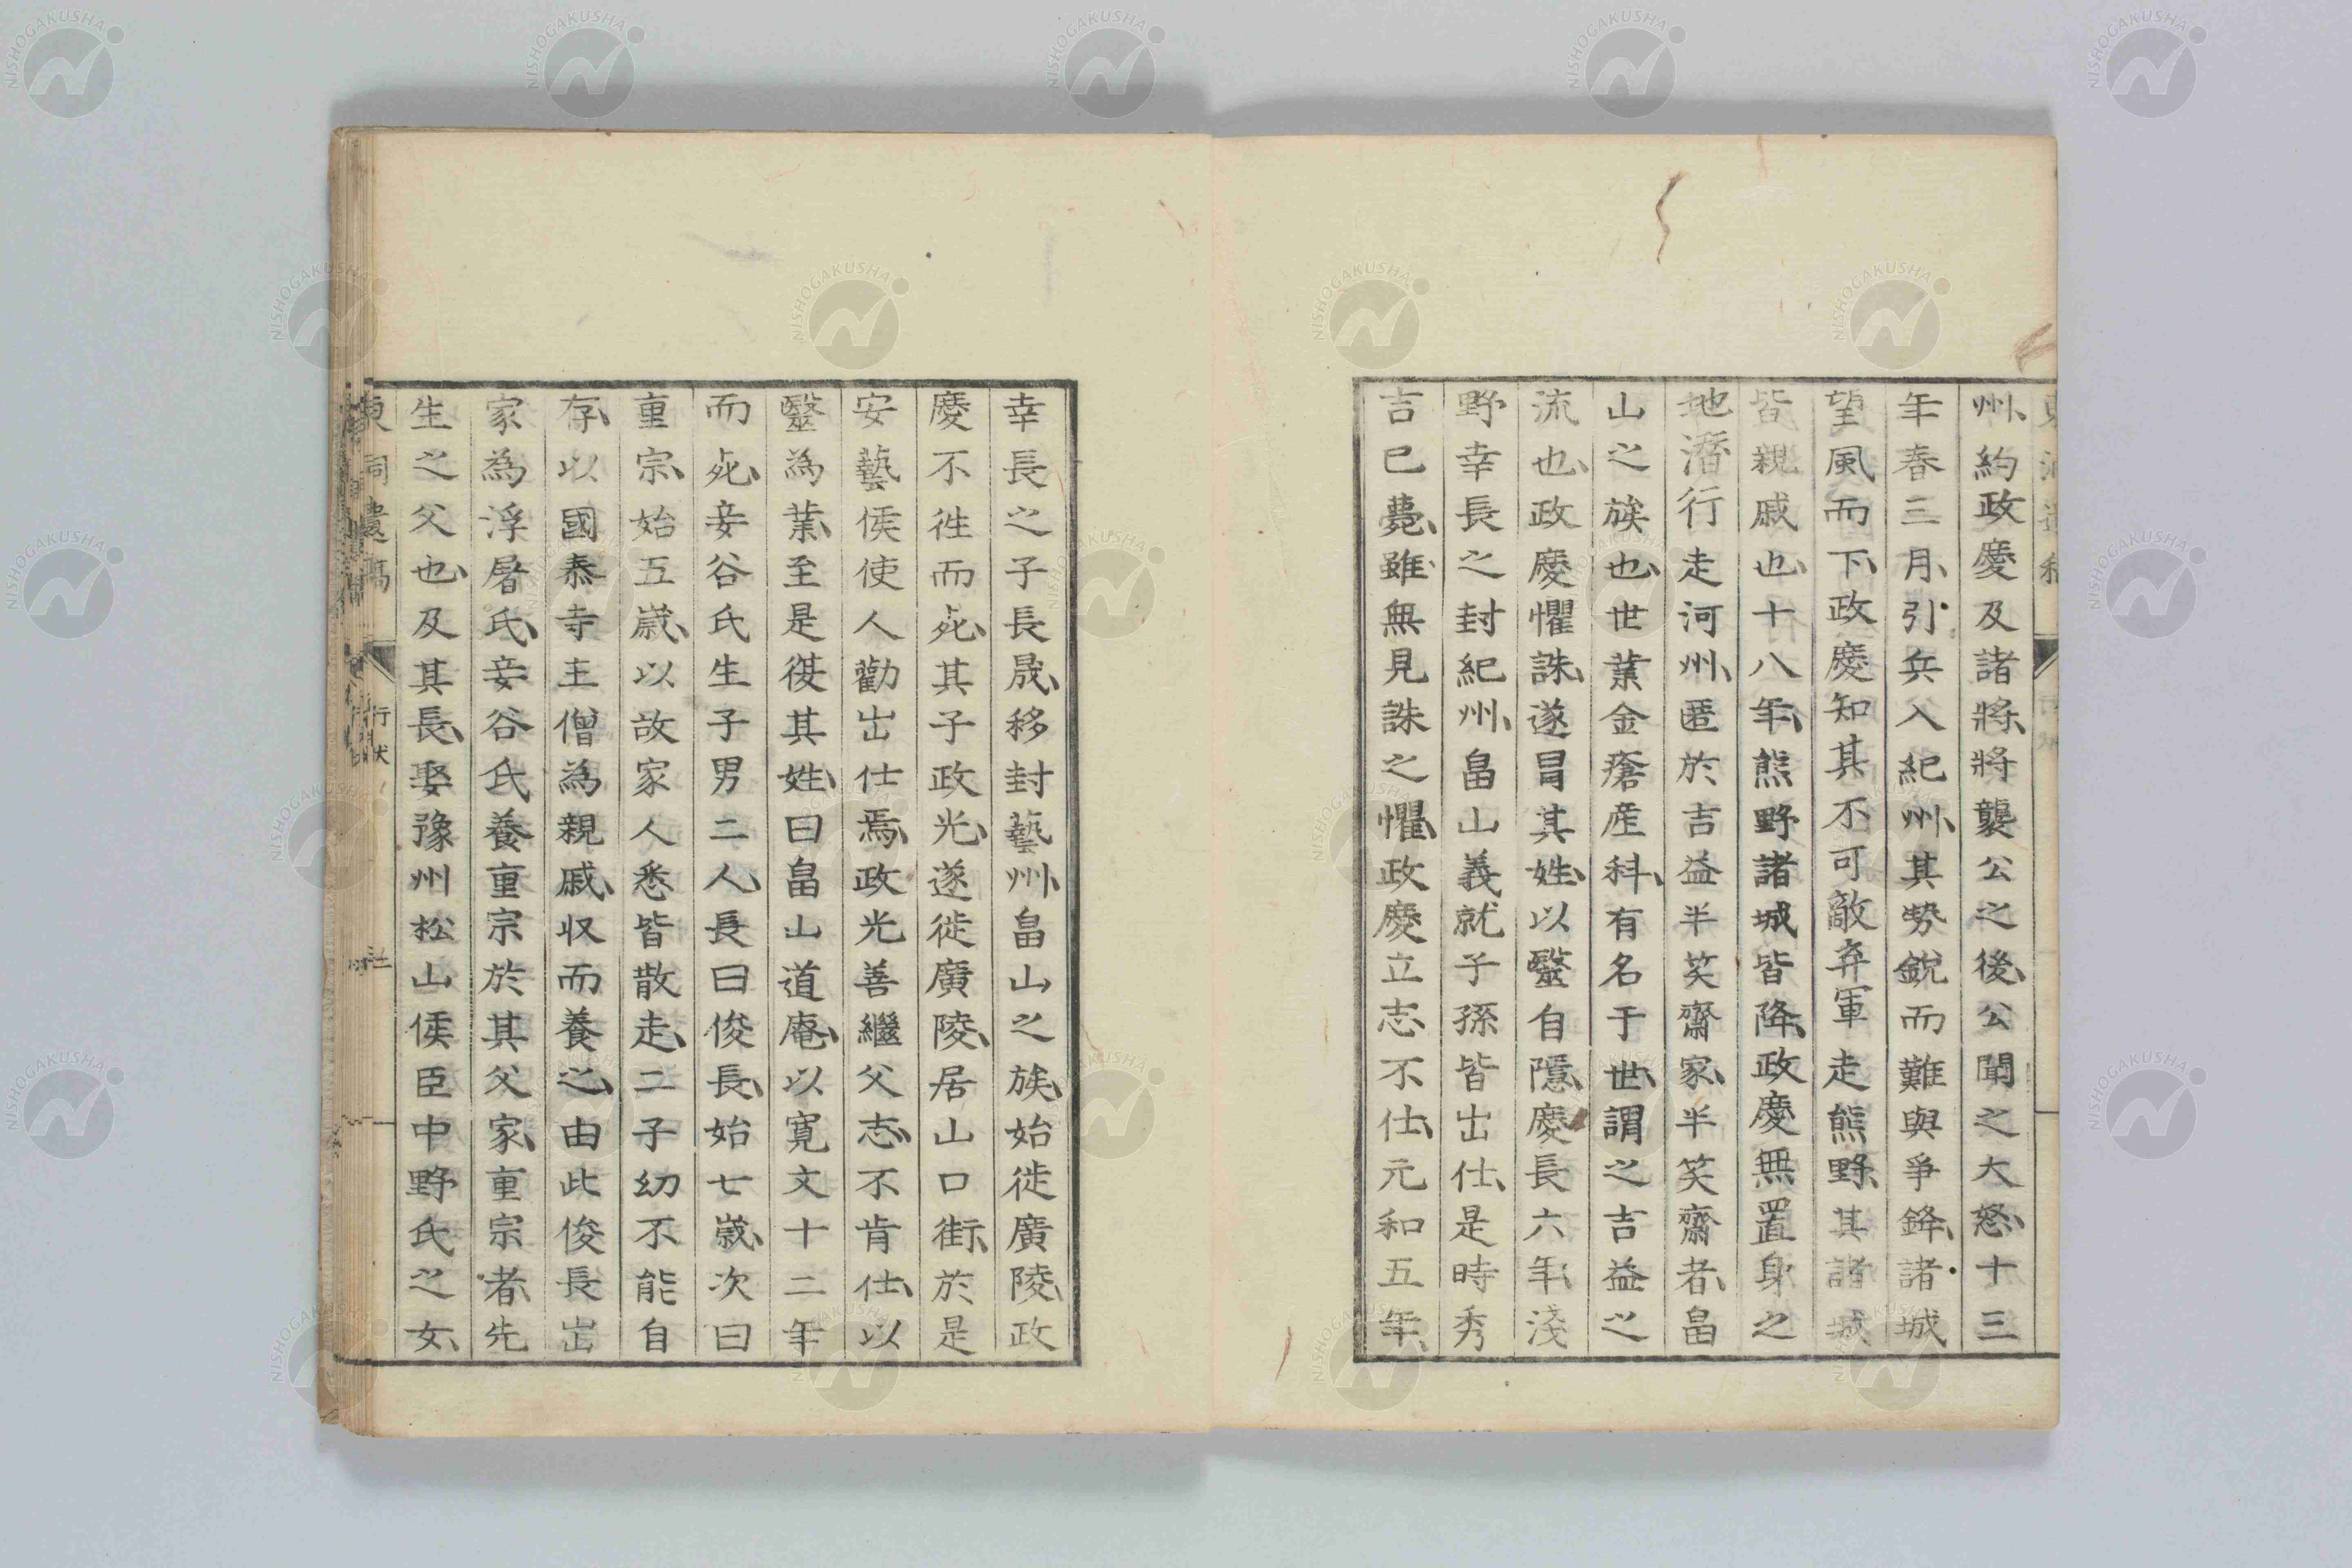 州、約政慶及諸將、將襲公之後、公聞之大怒、十三
年春三月、引兵入紀州、其勢銳而難與爭鋒、諸城
望風而下、政慶知其不可敵弃軍走熊野、其諸城
皆親戚也、十八年、熊野諸城皆降、政慶無置身之
地潛行走河州、匿於吉益半笑齋家、半笑齋者、畠
山之族也、世業金瘡産科、有名于世、謂之吉益之
流也、政慶懼誅、遂冐其姓、以毉自隱、慶長六年、淺
野幸長之封紀州、畠山義就子孫皆出仕、是時秀
吉已薨、雖無見誅之懼、政慶立志不仕、元和五年、
幸長之子長晟、移封藝州、畠山之族、始徙廣陵、政
慶不徃而死、其子政光、遂徙廣陵、居山口街、於是
安藝侯使人勸出仕焉、政光善繼父志、不肯仕、以
毉為業、至是復其姓、曰畠山道庵、以寬文十二年
而死、妾谷氏生子男二人、長曰俊長、始七歲、次曰
重宗、始五歲、以故家人悉皆散走、二子幼不能自
存、以國泰寺主僧為親戚、収而養之、由此俊長出
家為浮屠氏、妾谷氏養重宗於其父家、重宗者、先
生之父也、及其長、娶豫州松山侯臣中野氏之女、
東洞遺稿 行状
NISHOGAKUSHA